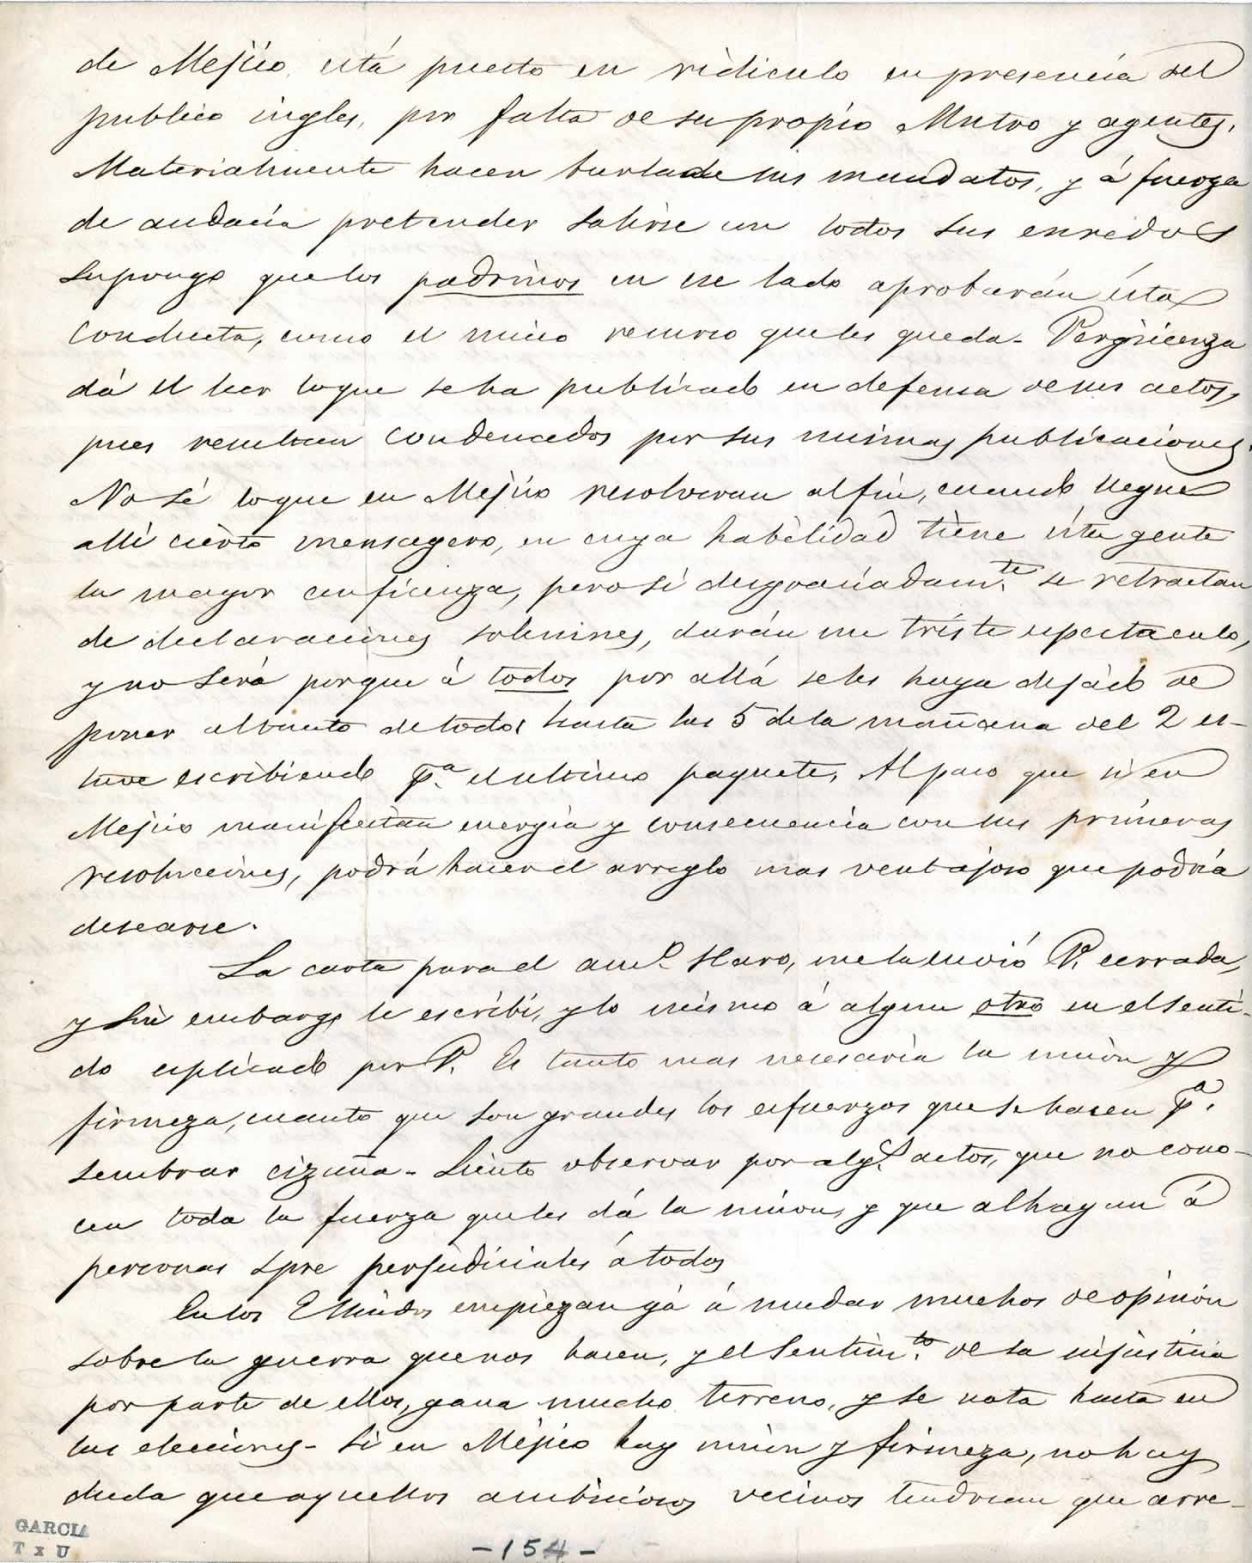 de Mejico, está puesto en ridiculo en presencia del
publico ingles, por falta de su propio Mntro y agentes.
Materialmente hacen burla de sus mandatos, y á fuerza
de audacia pretender salirse con todos sus enredos
Supongo que los padrinos en ese lado aprobarán ésta
conducta, como el unico recurso que les queda. Vergüenza
dá el leer lo que se ha publicado en defensa de sus actos,
pues resultan condenados por sus mismas publicaciones.
No sé lo que en Mejico resolveran al fin, cuando llegue
allí cierto mensagero, en cuya habilidad tiene ésta gente
la mayor confianza, pero si desgraciadamte. se retractan
de declaraciones solemnes, darán un triste espectaculo,
y no será porque á todos por allá se les haya dejado de
poner al tanto de todo; hasta las 5 de la mañana del 2 es-
tuve escribiendo pa. el ultimo paquete. Al paso que si en
Mejico manifiestan energia y consecuencia con sus primeras
resoluciones, podrá hacer el arreglo mas ventajoso que podria
desearse.
La carta para el amo. Haro, me la envió V. cerrada,
y sin embargo le escribí, y lo mismo á algun otro en el senti-
do esplicado por V. Es tanto mas necesaria la union y
firmeza, cuanto que son grandes los esfuerzos que se hacen pa.
sembrar cizaña. Siento observar por algs. actos, que no cono-
cen toda la fuerza que les dá la union y que alhagan á
personas spre perjudiciales á todos
En los EUnidos empiezan yá á mudar muchos de opinion
sobre la guerra que nos hacen, y el sentimto. de la injusticia
por parte de ellos, gana mucho terreno, y se nota hasta en
las elecciones. Si en Méjico hay union y firmeza, no hay
duda que aquellos ambiciosos vecinos tendrian que arre-
GARCIA
T x U
-154-